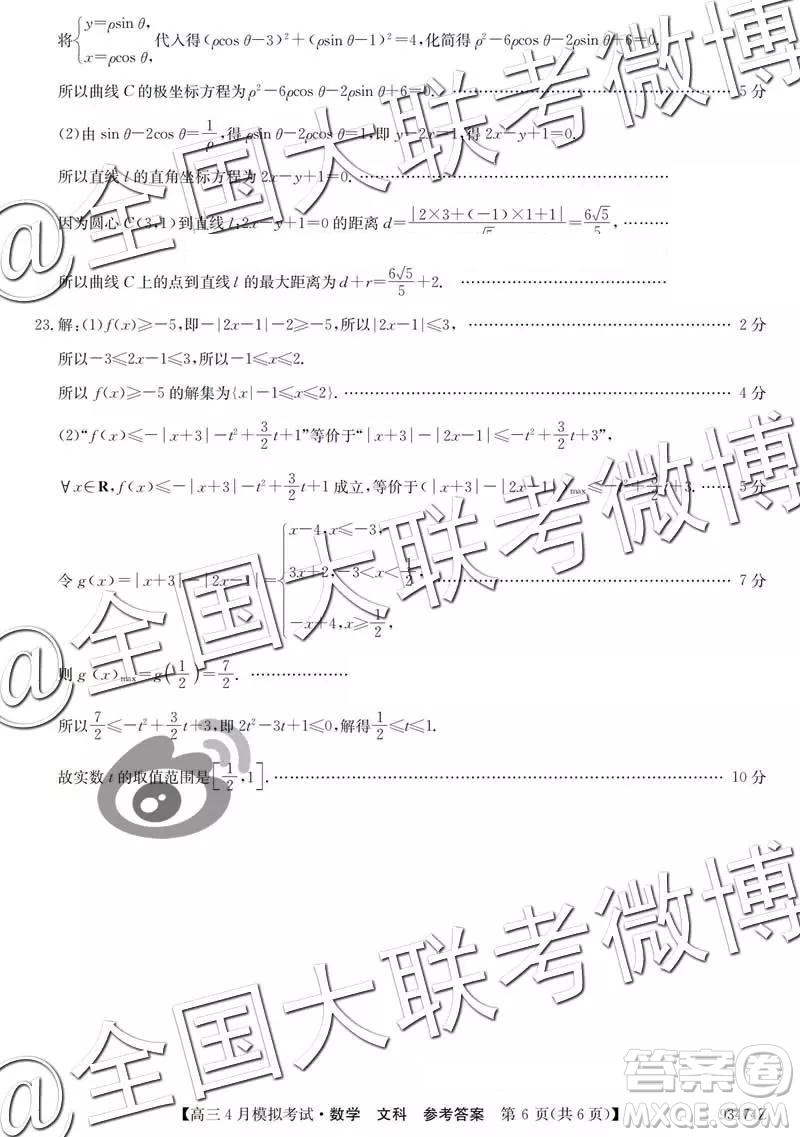 将{y=ρsin θ, x=ρcos θ, 代入得(ρcos θ-3)²+(ρsin θ-1)²=4,化简得ρ²-6ρcos θ-2ρsin θ+6=0.
所以曲线 C 的极坐标方程为ρ²-6ρcos θ-2ρsin θ+6=0. …… 5 分
(2)由 sin θ-2cos θ=1/ρ,得ρsin θ-2ρcos θ=1,即 y-2x=1,得 2x-y+1=0.
所以直线 l 的直角坐标方程为 2x-y+1=0. ……
因为圆心 C(3,1)到直线 l:2x-y+1=0 的距离 d=|2×3+(-1)×1+1|/√5=6√5/5, ……
所以曲线 C 上的点到直线 l 的最大距离为 d+r=6√5/5+2. ……
23.解:(1)f(x)≥-5,即-|2x-1|-2≥-5,所以|2x-1|≤3, …… 2 分
所以-3≤2x-1≤3,所以-1≤x≤2.
所以 f(x)≥-5 的解集为{x|-1≤x≤2}. …… 4 分
(2)“f(x)≤-|x+3|-t²+3/2t+1”等价于“|x+3|-|2x-1|≤-t²+3/2t+3”,
∀x∈R,f(x)≤-|x+3|-t²+3/2t+1 成立,等价于(|x+3|-|2x-1|)max≤-t²+3/2t+3. …… 5 分
令 g(x)=|x+3|-|2x-1|={x-4,x≤-3, 3x+2,-3<x<1/2, -x+4,x≥1/2, …… 7 分
则 g(x)max=g(1/2)=7/2. ……
所以7/2≤-t²+3/2t+3,即 2t²-3t+1≤0,解得1/2≤t≤1.
故实数 t 的取值范围是[1/2,1]. …… 10 分
@全国大联考微博
@全国大联考微博
答案卷
【高三 4 月模拟考试·数学 文科 参考答案 第 6 页(共 6 页)】 93474Z